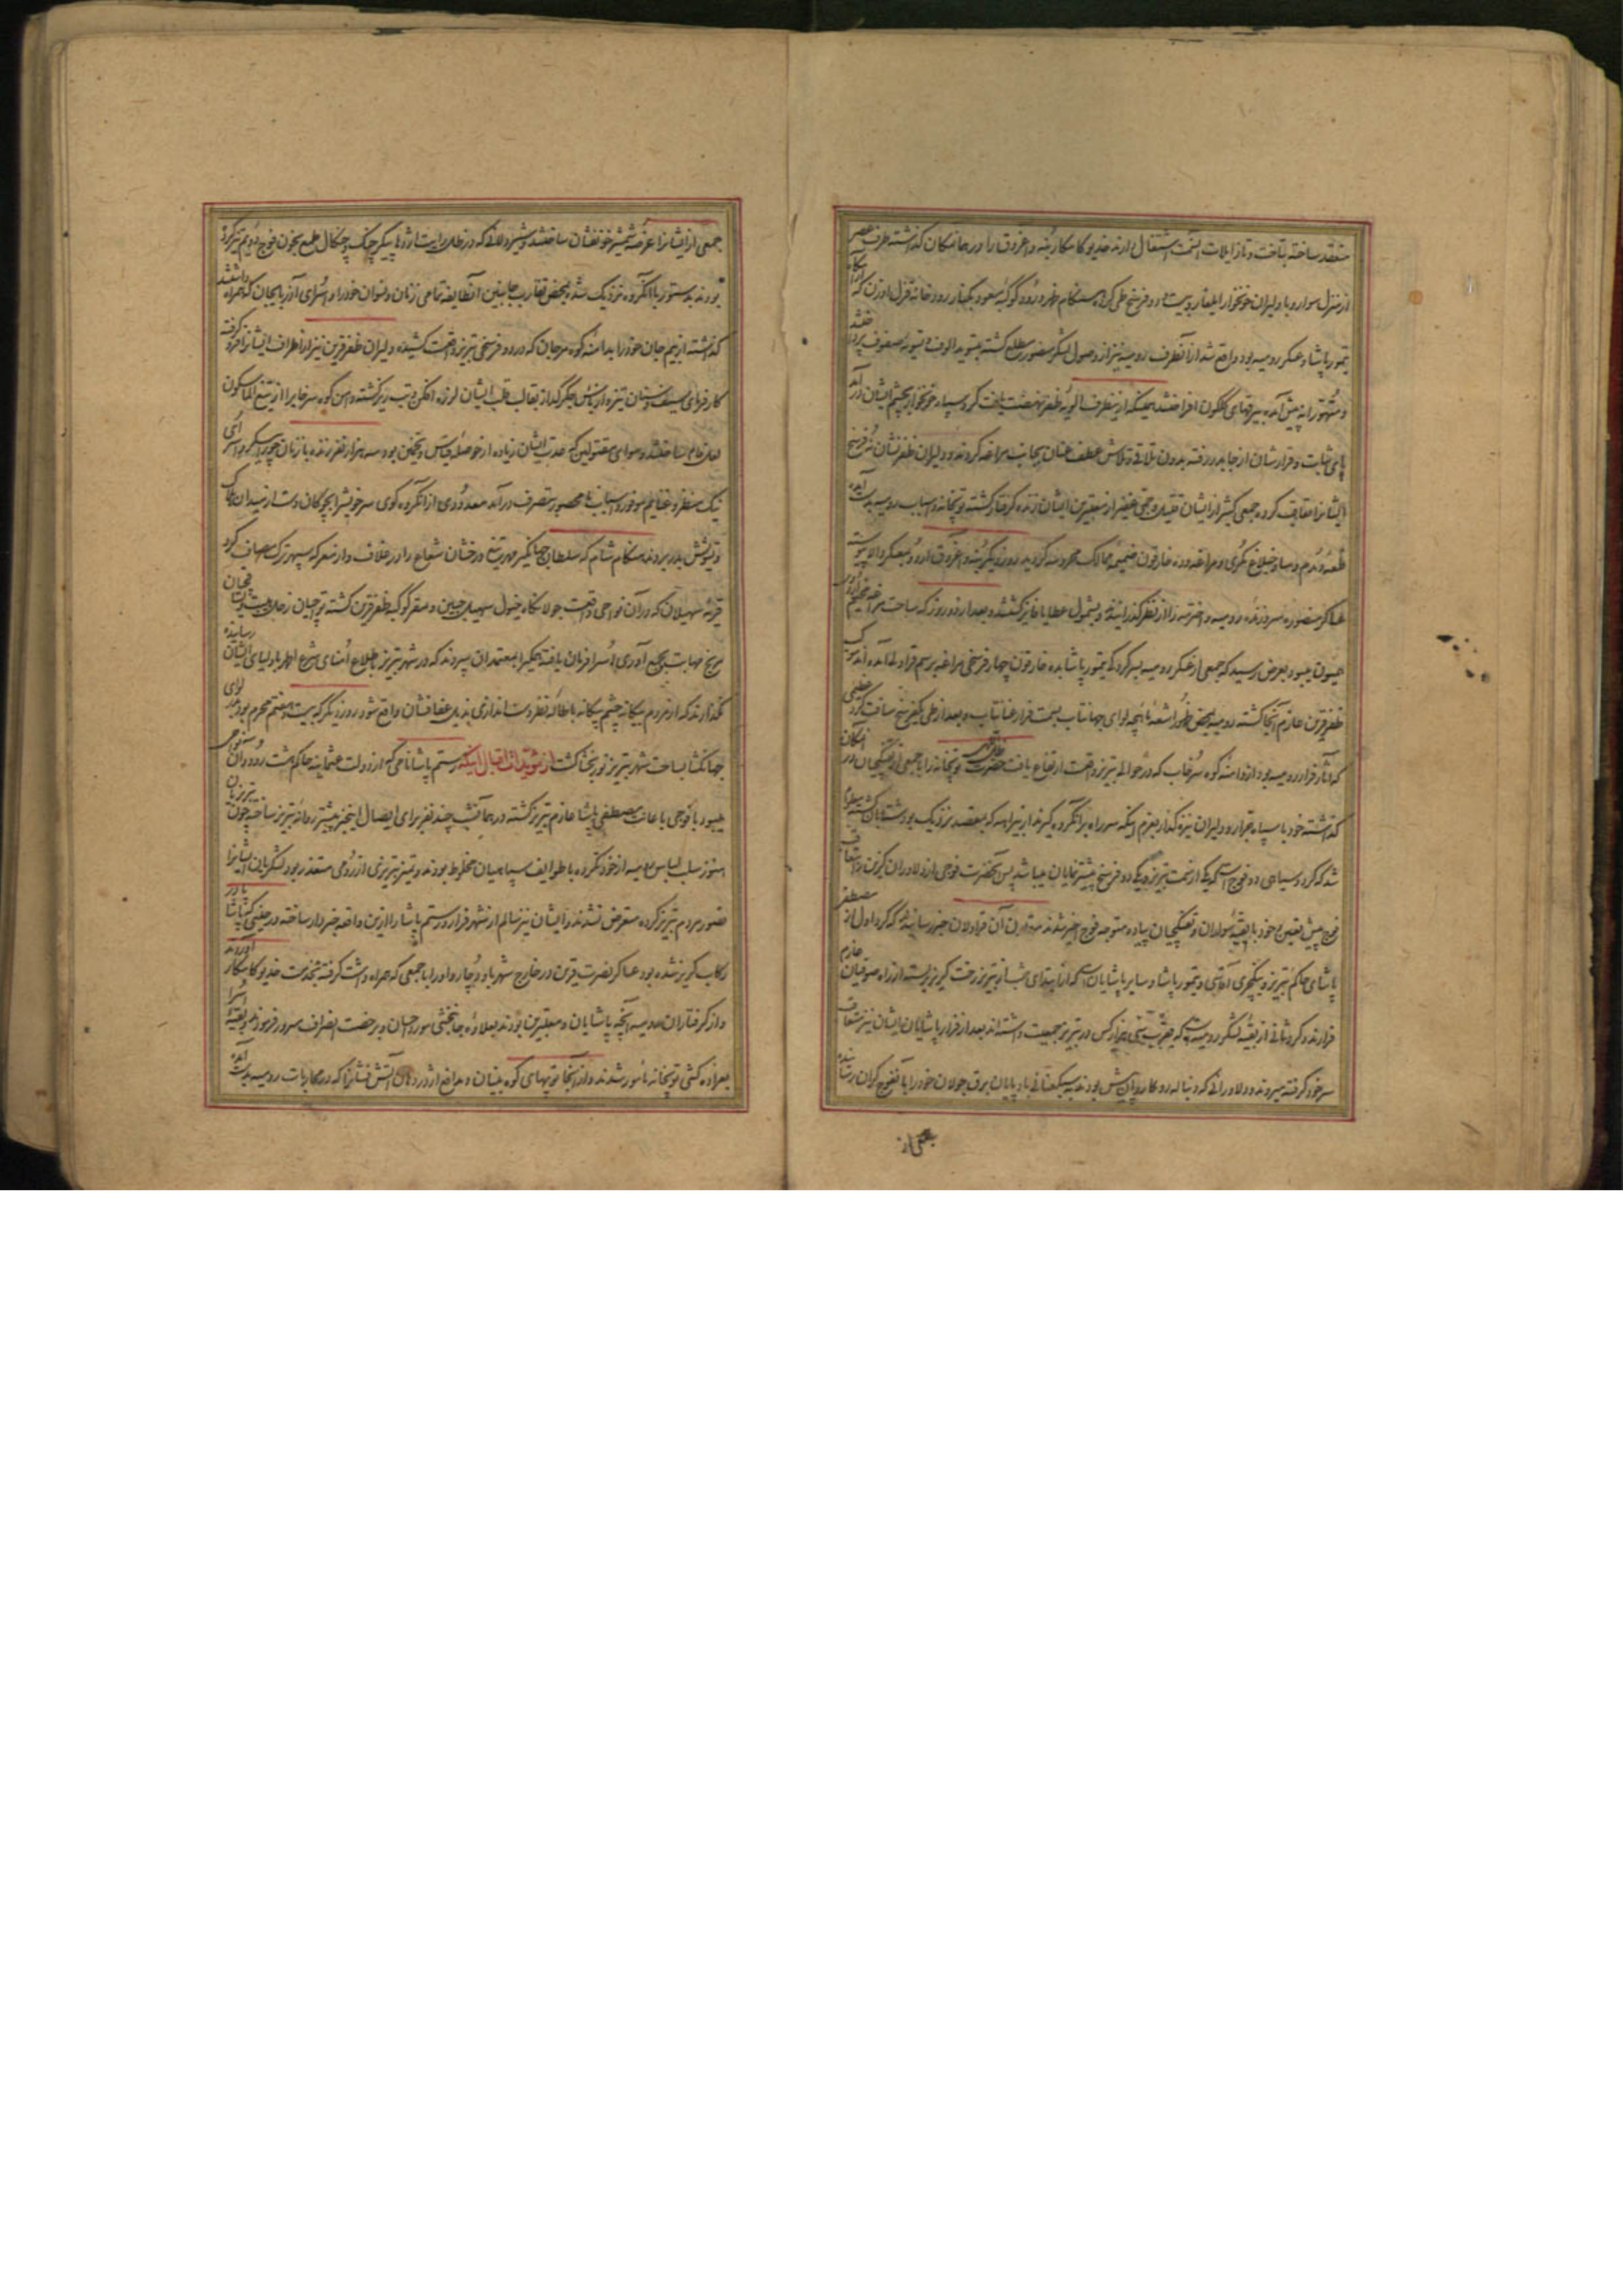 منعقد ساخته بتاخت و تاز ایلات آنسمت اشتغال دارند خدیو کامکار بنه و اغروق را در همانمکان گذاشته طرف عصر
از منزل سوار و با دلیران خونخوار ایلغار و بیست و دو فرسخ طی کرده هنگام ظهر ورود کوکبه مسعود بکنار رودخانه قزل اوزن که
تیمور پاشا و عسکر رومیه بود واقع شد از آنطرف رومیه نیز از وصول لشکر منصور مطلع گشته بتسویه الوف و تسویه صفوف پرداختند
و متهورانه پیش آمده بیرقهای گلگون افراختند همینکه از ینطرف الویه ظفر نهضت یافت گرد سپاه خونخوار بچشم ایشان درآمد
پای ثبات و قرارشان از جا بدر رفته بدون تلاقی و تلاش عطف عنان بجانب مراغه کردند و دلیران ظفرنشان نه فرسخ
ایشانرا تعاقب کرده جمعی کثیر از ایشان قتیل و جمعی غفیر از معتبرین ایشان زنده گرفتار گشته توپخانه و اسباب رومیه بدست آمد
قلعه دمدم و ساوجبلاغ مکری و مراغه و ده خارقون ضمیمه ممالک محروسه گردید روز دیگر بنه و اغروق وارد معسکر والا پیوسته
عساکر منصوره سر و زنده رومیه و اخترمه را از نظر گذرانیدند و بشمول عطایا فایز گشتند و بعد از دو روز که ساحت مراغه مخیم اردوی
همیون میبود بعرض رسید که جمعی از عسکر رومیه بسرکردگی تیمور پاشا به ده خارقون چهار فرسخی مراغه برسم قراولی آمده اند موکب
ظفرقرین عازم آنجا گشته رومیه بمحض ظهور اشعه ماهچه لوای جهانتاب بسمت فرار عنانتاب و بعد از طی یکفرسخ مسافت گرد عظیمی
که آثار فرار رومیه بود از دامنه کوه سرخاب که در حوالی تبریز واقعست ارتفاع یافت حضرت ظل اللهی توپخانه را با جمعی از تفنگچیان در آنمکان
گذاشته خود با سپاه جرار و دلیران نیزه گذار بعزم اینکه سر راه بر آنگروه گیرند از بیراهه که بمقصد نزدیک بود شتابان گشته معلوم
شد که گرد و سیاهی دو فوج است که یکی از سمت تبریز و یکی دو فرسخ پیشتر نمایان میباشد پس آنحضرت فوجی از دلاوران گزین را بتعاقب
فوج پیش تعیین و خود با بقیه سواران و تفنگچیان پیاده متوجه فوج اخیر شدند مقارن آن قراولان خبر رسانیدند که گرد اول از مصطفی
پاشای حاکم تبریز و ینکچری آقاسی و تیمور پاشا و سایر پاشایان است که از ابتدای شب از تبریز رخت گریز بسته از راه صوفیان عازم
فرارند و گرد ثانی از بقیه لشکر رومیه است که بقدر سی هزار کس در تبریز جمعیت داشته اند بعد از فرار پاشایان ایشان نیز متعاقب
سر خود گرفته میروند و دلاورانی که دنباله رو کاروان پیش بودند به سبکعنانی بادپایان برق جولان خود را بآنفوج گران رسانده
بعضی از
جمعی از ایشانرا عرضه شمشیر خونفشان ساختند و شیردلانی که در ظلال رایت اژدها پیکر چنک و چنگال طمع بخون فوج دویم تیز کرده
بودند بدستور با آنگروه نزدیک شده بمحض تقارب جانبین آنطایفه تمامی زنان و نسوان خود را و اسرای آذربایجان که همراه داشتند
گذاشته از بیم جان خود را بدامنه کوه مرجان که در دو فرسخی تبریز واقعست کشیده دلیران ظفرقرین نیز از اطراف ایشانرا فرو گرفته
کارفرمای سیف و سنان تیز و از بس جگرگداز بقالب قلب ایشان لرزه افکن و تب ریز گشته دامن کوه سرخاب را از تیغ الماسگون
لعل فام ساختند و سوای مقتولین که عدت ایشان زیاده از حوصله قیاس و تخمین بود سه هزار نفر زنده با زنان حورپیکر و اسرای
نیک منظر و غنایم موفور و اسباب نامحصور بتصرف درآمد معدودی از آنگروه گوی سر خویش را بچوگان دست از میدان هلاک
و تشویش بدر بردند هنگام شام که سلطان جهانگیر مهر تیغ درخشان شعاع را در غلاف و از معرکه سپهر ترک مصاف کرد
قریه سهیلان که در آن نواحی واقعست جولانگاه خیول سهیل جبین و مقر کوکبه ظفرقرین گشته توپچیان زحل هیبت و تفنگچیان
مریخ مهابت بجمع آوری اسرا فرمان یافت و همگی را بمعتمدان سپردند که در شهر تبریز باطلاع امنای شرع اطهر باولیای ایشان رسانیده
نگذارند که از مردم بیگانه چشم بیگانه باطاله نظر و دست اندازی بذیل عفافشان واقع شود روز دیگر که بیست و هفتم محرم بود لوای
جهانگشا بساحت شهر تبریز نورنجشا گشت از مؤیدات اقبال اینکه رستم پاشا نامی که از دولت عثمانیه حاکم هشت رود و آن نواحی
میبود با فوجی باعانت مصطفی پاشا عازم تبریز گشته در همانشب چند نفر برای ایصال اینخبر پیشتر روانه تبریز ساخته چون تبریزیان
هنوز سلب لباس رومیه از خود نکرده با طوایف سپاهیان مخلوط بودند و تمیز تبریزی از رومی متعذر بود لشکریان ایشانرا
تصور مردم تبریز کرده متعرض نشدند و ایشان نیز سالم از شهر فرار و رستم پاشا را ازین واقعه خبردار ساخته در حینی که پاشا پا در
رکاب گریز شده بود عساکر نصرت قرین در خارج شهر باو دچار و او را با جمعی که همراه داشت گرفته بخدمت خدیو کامکار آوردند
و از گرفتاران رومیه آنچه پاشایان و معتبرین بودند بعلاوه جانبخشی مورد احسان و برخصت انصراف مسرور فرمودند و بقیه اسرا
بعراده کشی توپخانه مأمور شدند و از آنجا توپهای کوه بنیان و مدافع اژدر دهان آتش فشانرا که در محاربات رومیه بدست آمده